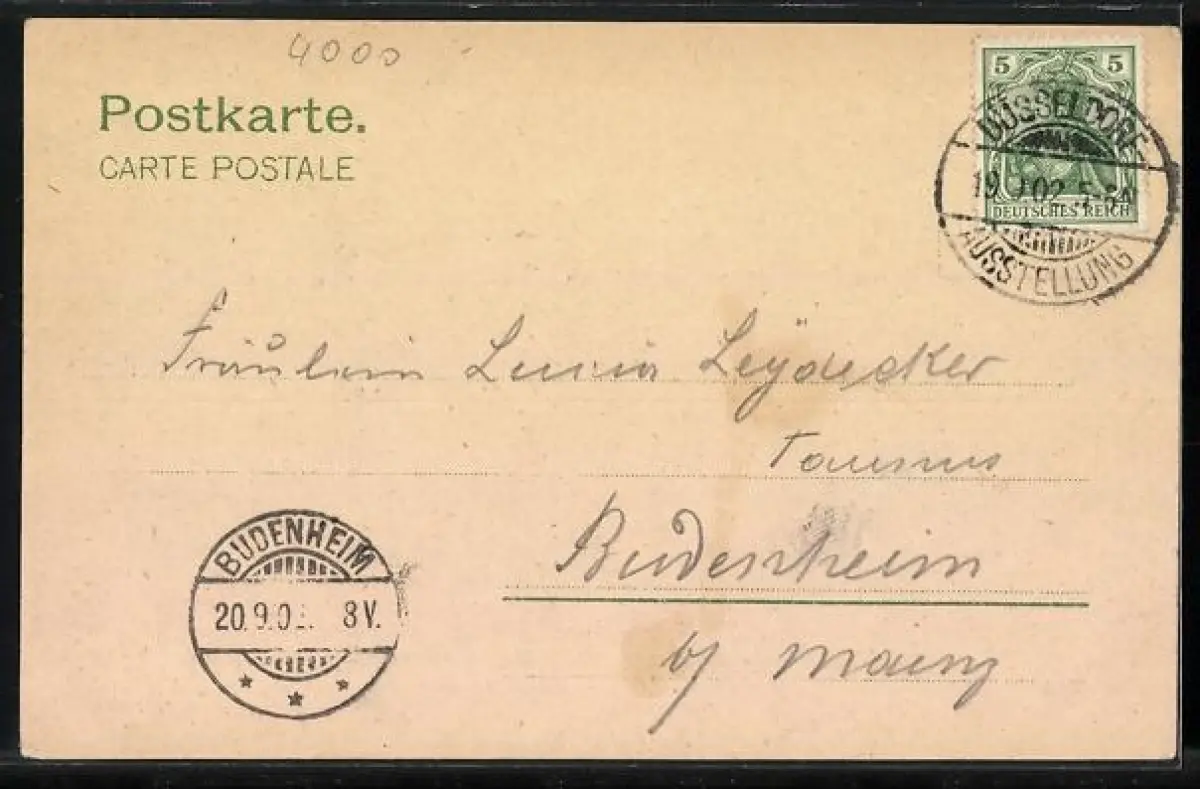 4000
Postkarte.
CARTE POSTALE
5 5
DÜSSELDORF
19. 02 5-6
DEUTSCHES REICH
AUSSTELLUNG
Fräulein Leydecker
Taunus
Budenheim
b/ Mainz
BUDENHEIM
20.9.0 8V.